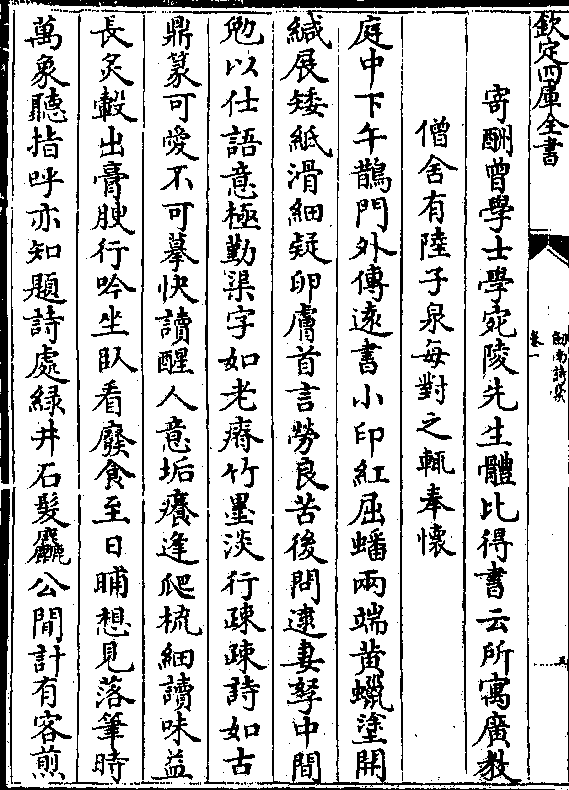 欽定四庫全書
劍南詩稾
卷一
五
寄酬曽學士學宛陵先生體比得書云所寓廣教
僧舍有陸子泉每對之輒奉懷
庭中下午鵲門外傳逺書小印紅屈蟠兩端黄蠟塗開
緘展矮紙滑細疑卵膚首言勞良苦後問逮妻孥中間
勉以仕語意極勤渠字如老瘠竹墨淡行疎疎詩如古
鼎篆可愛不可摹快讀醒人意垢癢逢爬梳細讀味益
長炙轂出膏腴行吟坐卧看廢食至日晡想見落筆時
萬象聽指呼亦知題詩處緑井石髮麤公閒計有客煎